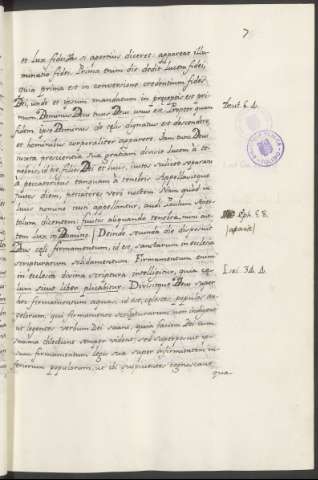 7
et lux fidei ac si apertius diceret: appareat illu-
minatio fidei. Prima enim die dedit lucem fidei,
quia prima est in conversione credentium fides.
Dei, unde et ipsum mandatum in preceptis est pri-
mum. Dominus Deus tuus Deus unus est. Propter quam
fidem ipse Dominus de celis dignatus est descendere
et hominibus corporaliter apparere. Iam tunc Deus
iuxta prescientia sua gratiam divisit lucem à te-
nebris, id est filios Dei et iustos separans
à peccatoribus tanquam à tenebris Appellavitque
istos diem, peccatores verò noctem. Nam quod in
lucis nomine iusti appellantur, audi Paulum Apos-
tolum dicentem: fuistis aliquando tenebrae, nunc au-
tem lux in Domino. Deinde secunda die disposuit
Deus celi firmamentum, id est, sanctarum in ecclesia
scripturarum solidamentum. Firmamentum enim
in ecclesia divina scriptura intelligitur, quia ce-
lum sicut liber plicabitur. Divisitque Deus super
hoc firmamentum aquas, id est, celestes populos an-
gelorum, qui firmamento scripturarum non indigent
ut legentes verbum Dei audiant, quia faciem Dei cum
summa dilectione semper vident: sed superposuit ip-
sum firmamentum legis suae super infirmitatem in-
feriorum populorum, ut ibi suspicientes cognoscant
qua-
Deut. 6. 4.
Eph. 5. 8.
(aparte)
Isai. 34. 4.